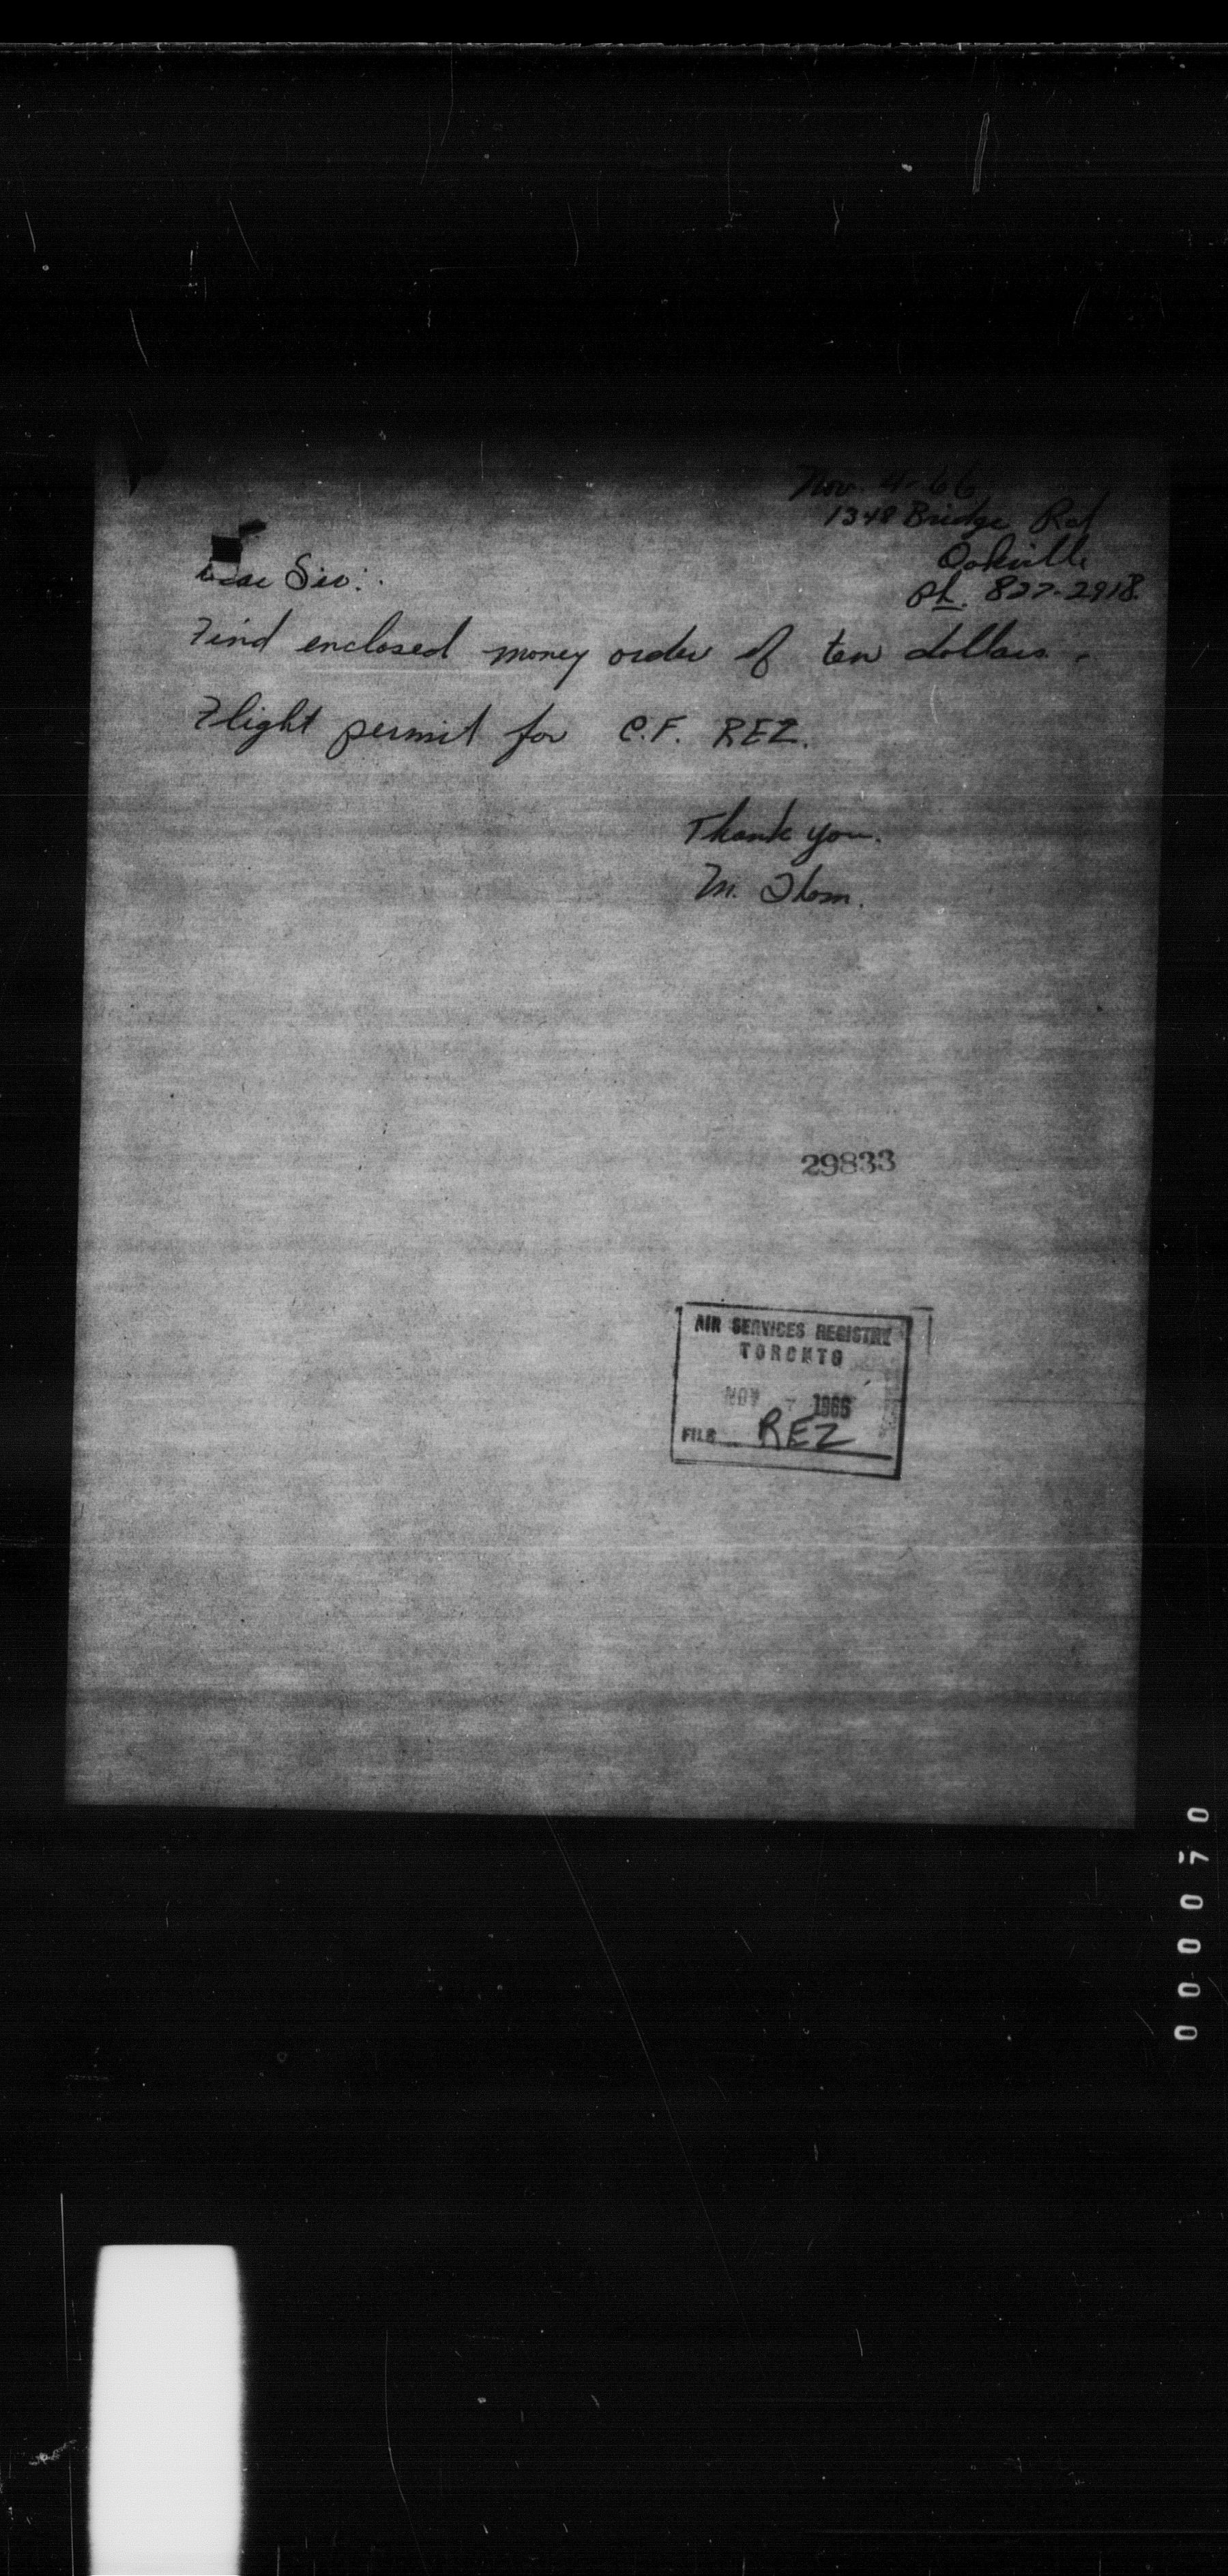 Nov. 4-66
1348 Bridge Rd
Oakville
Ph. 827-2918
Dear Sir:
Find enclosed money order of ten dollars.
Flight permit for C.F. REZ.
Thank you.
M. Thom.
29833
AIR SERVICES REGISTRY
TORONTO
NOV 7 1966
FILE REZ
000070